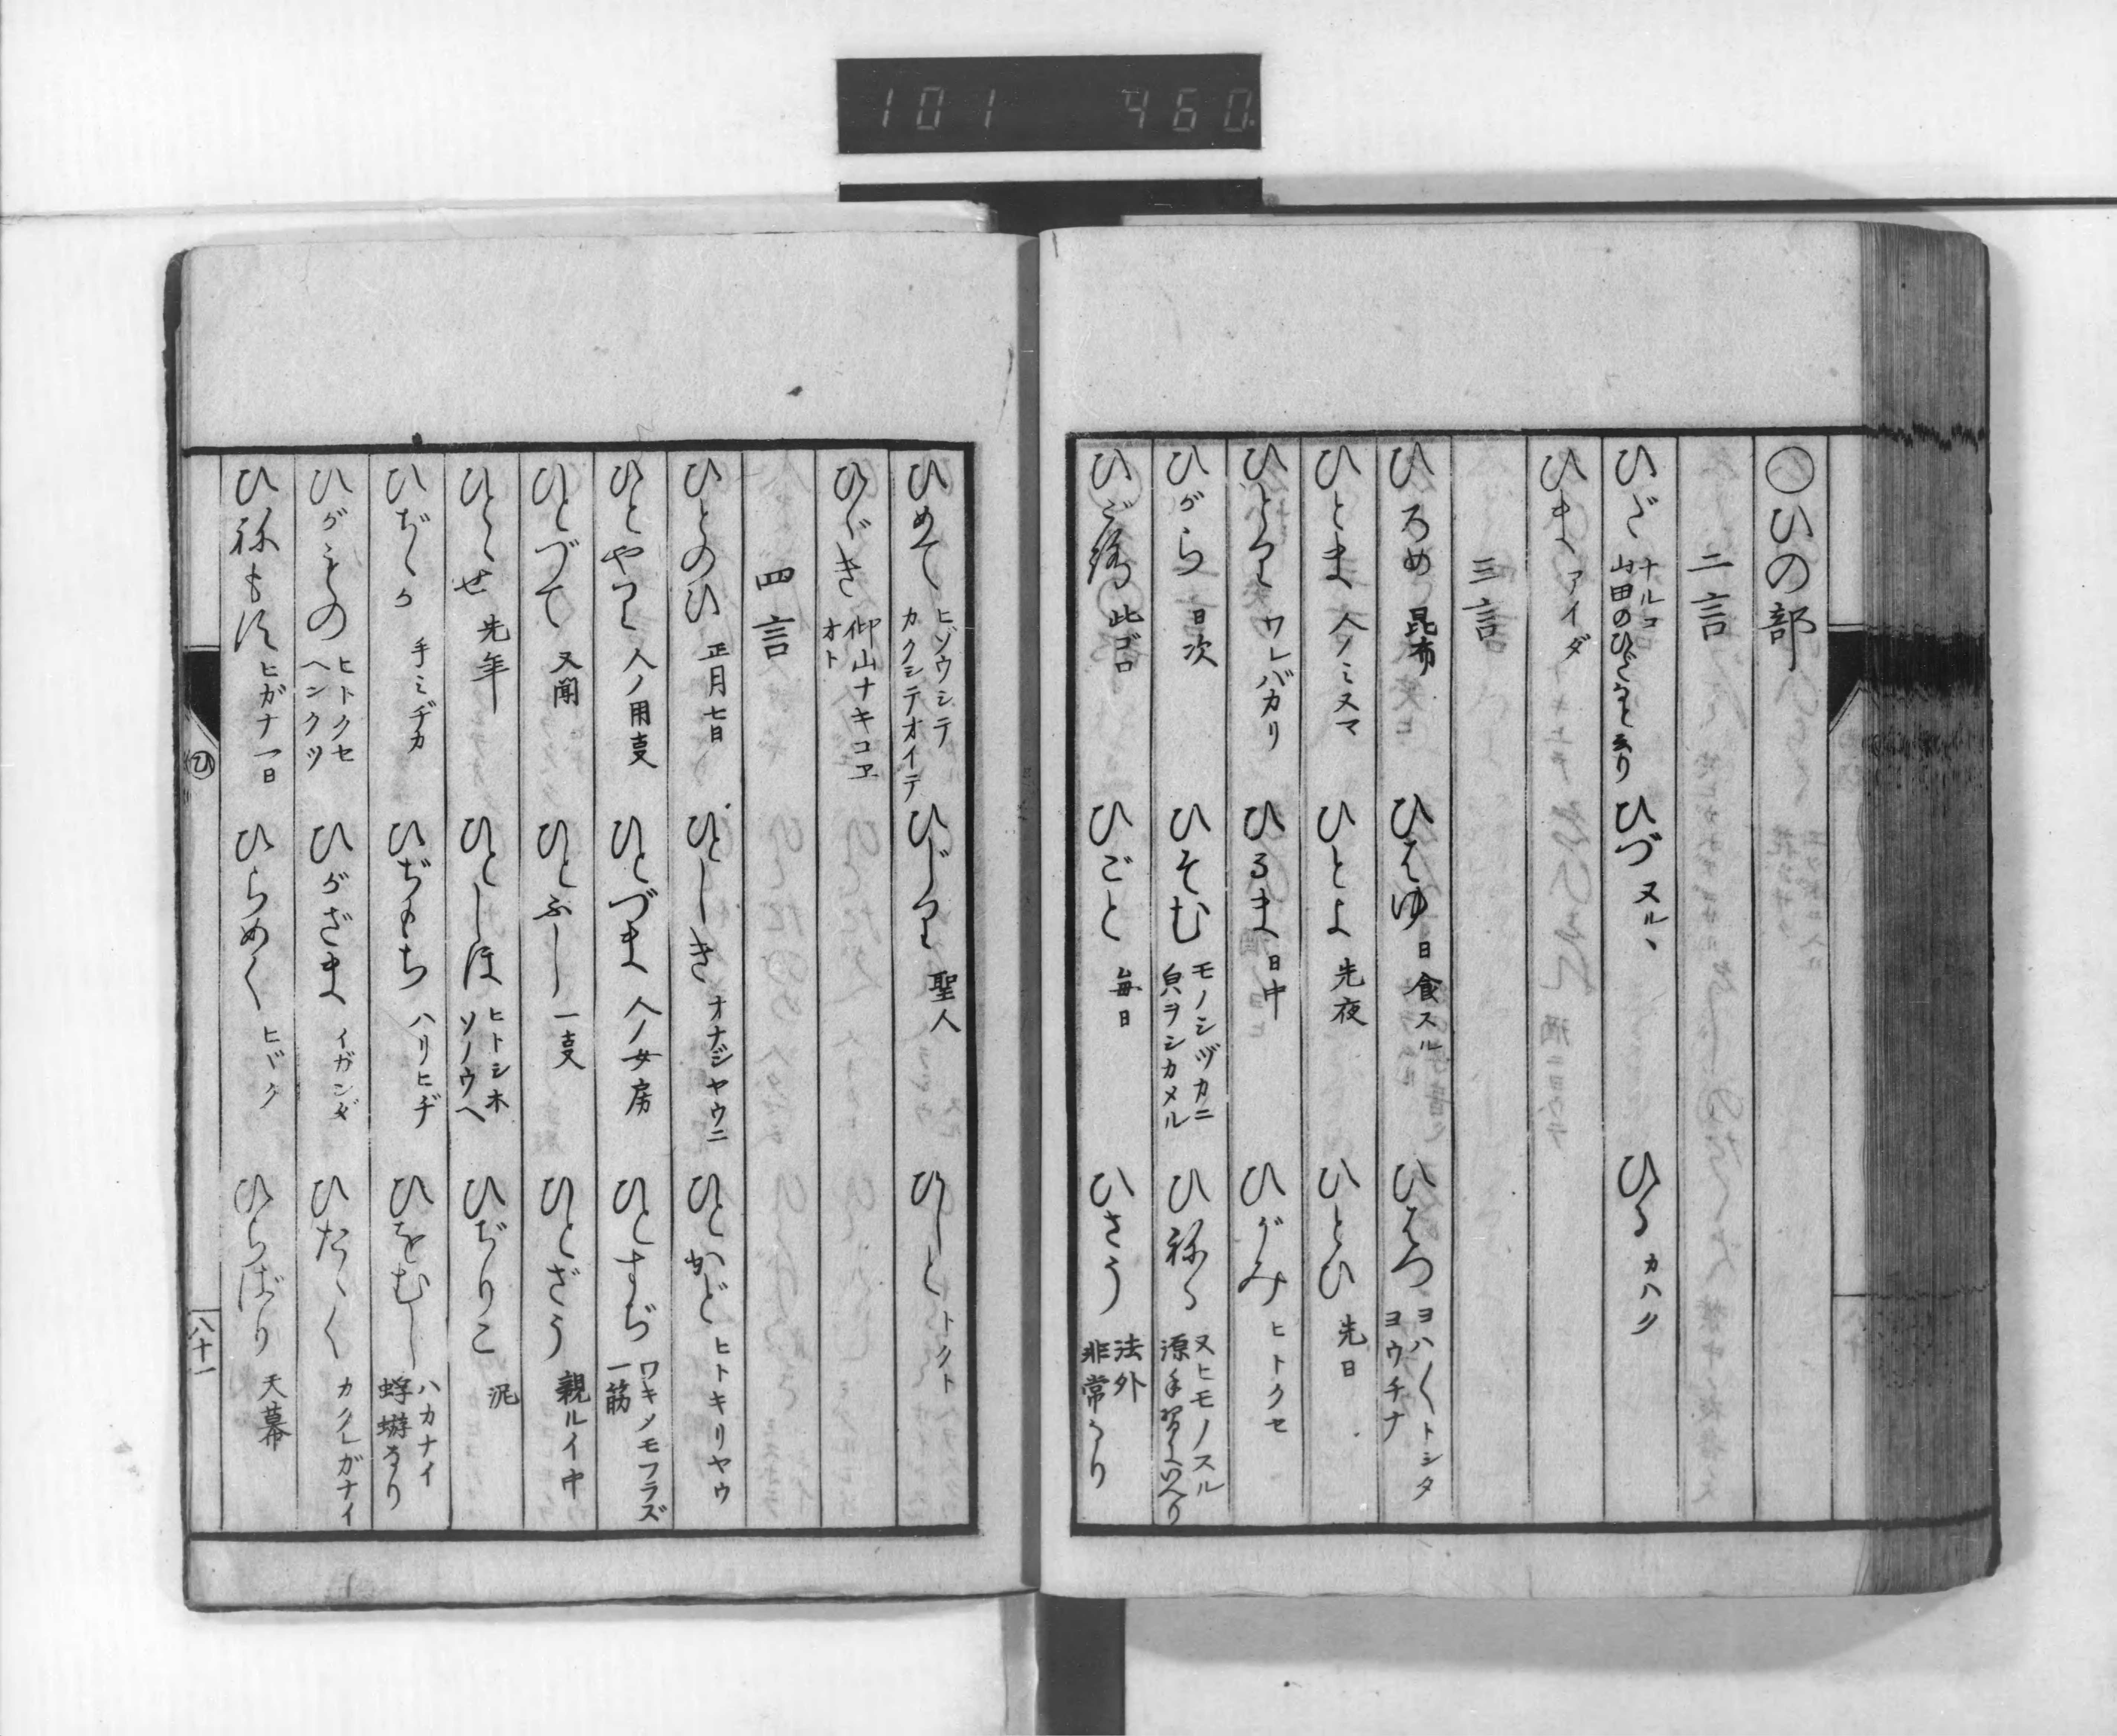 101 460
○ひの部
二言
ひだ ナルコ 山田のひだなと云り ひづ ヌルヽ ひる カハク
ひま アイダ
三言
ひろめ 昆布 ひはゆ 日食スル ひはつ ヨハ〳〵トシタ ヨウチナ
ひとま 人ノミヌマ ひとよ 先夜 ひとひ 先日
ひとり ワレバカリ ひるま 日中 ひがみ ヒトクセ
ひがら 日次 ひそむ モノシヅカニ 皃ヲシカメル ひねる 又ヒモノスル 源手習にいへり
ひごろ 此ゴロ ひごと 毎日 ひさう 法外 非常なり
ひめて ヒゾウシテ カクシテオイテ ひじり 聖人 ひしと トクト
ひゞき 仰山ナキコヱ オト
四言
ひとのひ 正月七日 ひとしき オナジヤウニ ひとかど ヒトキリヤウ
ひとやり 人ノ用支 ひとづま 人ノ女房 ひとすぢ ワキメモフラズ 一筋
ひとづて 又聞 ひとふし 一支 ひとざう 親ルイ中
ひとゝせ 先年 ひとしほ ヒトシホ ソノウヘ ひぢりこ 泥
ひぢゝか 手ミヂカ ひぢもち ハリヒヂ ひをむし ハカナイ 蜉蝣なり
ひがもの ヒトクセ ヘンクツ ひがざま イガンダ ひたゝく カクレガナイ
ひねもす ヒガナ一日 ひらめく ヒヾク ひらばり 天幕
ひ
八十一